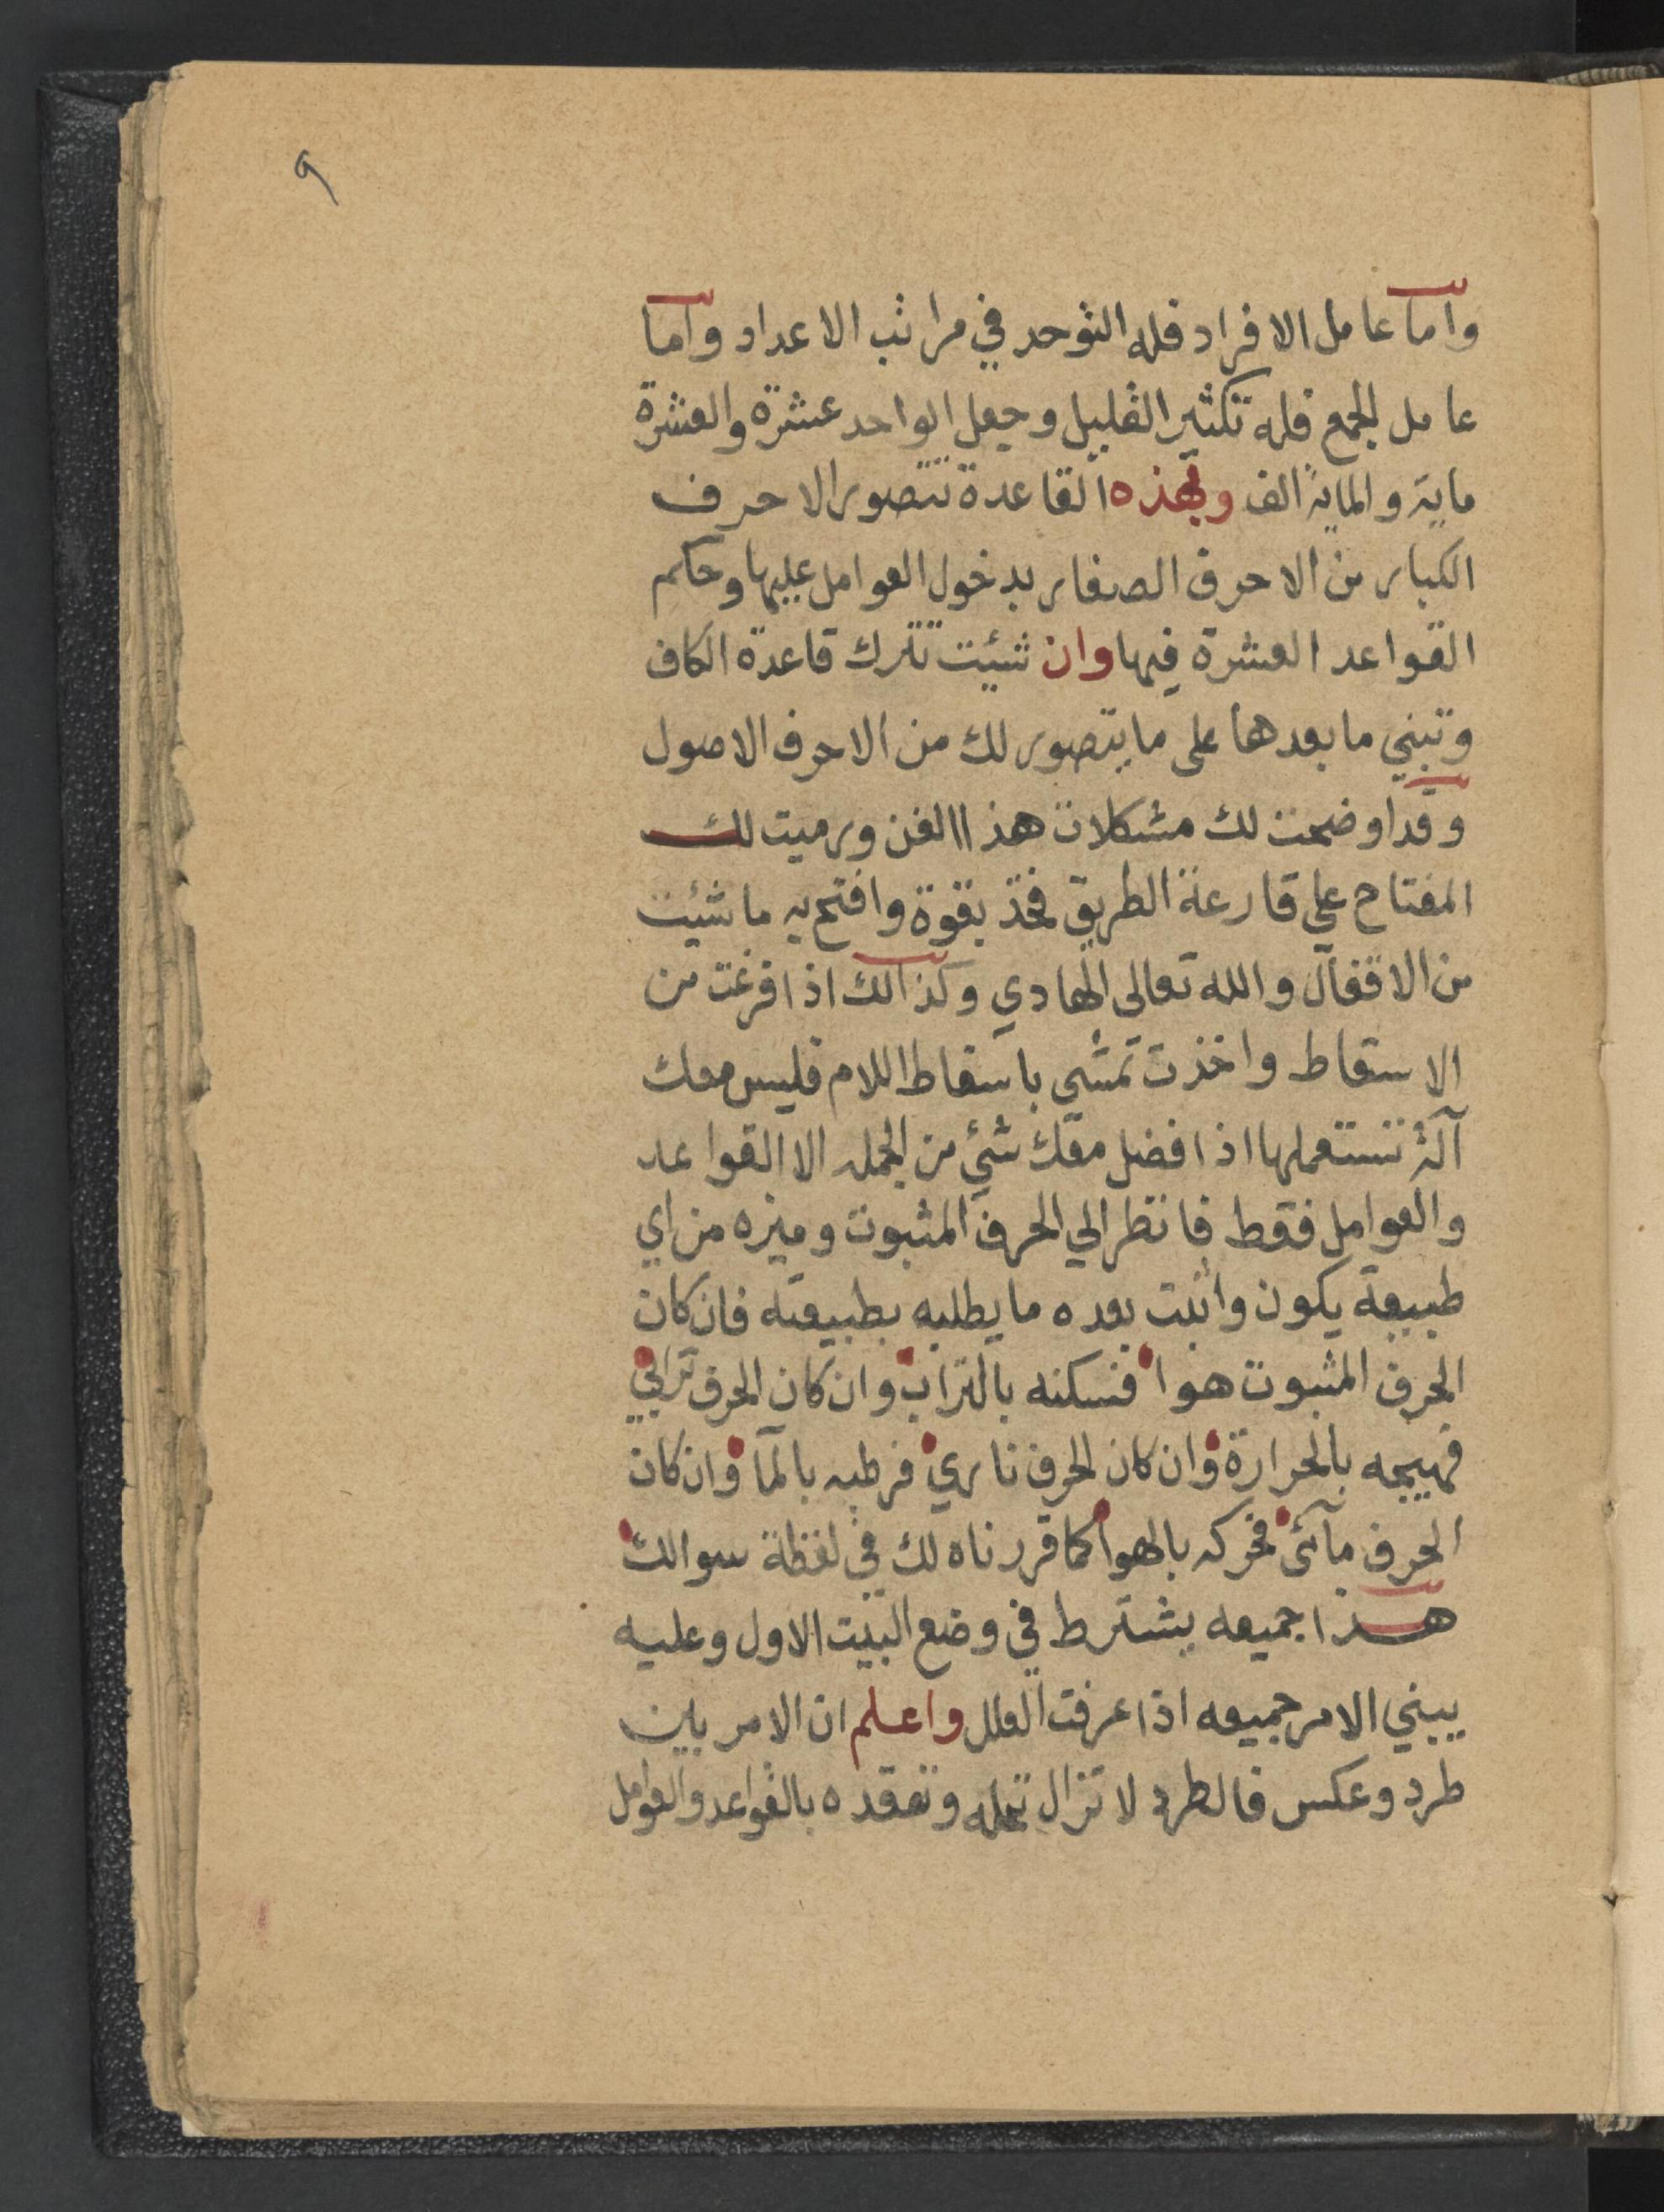 ٩
واما عامل الافراد فله التوحد في مراتب الاعداد واما
عامل الجمع فله تكثير القليل وجعل الواحد عشرة والعشرة
ماية والماية الف وبهذه القاعدة تتصور الاحرف
الكبار من الاحرف الصغار بدخول العوامل عليها وحكم
القواعد العشرة فيها وان شيئت تترك قاعدة الكاف
وتبني ما بعدها على ما يتصور لك من الاحرف الاصول
وقد اوضحت لك مشكلات هذا الفن ورميت لك
المفتاح على قارعة الطريق فخذ بقوة وافتح به ما شيئت
من الاقفال والله تعالى الهادي وكذالك اذا فرغت من
الاسقاط واخذت تمشي باسقاط اللام فليس معك
آلة تستعملها اذا فضل معك شيء من الجمله الا القواعد
والعوامل فقط فانظر الي الحرف المثبوت وميزه من اي
طبيعة يكون واثبت بعده ما يطلبه بطبيعته فان كان
الحرف المثبوت هوا فسكنه بالتراب وان كان الحرف ترابي
فهيجه بالحرارة وان كان الحرف ناري فرطبه بالمآ وان كان
الحرف مآئى فحركه بالهوا كما قررناه لك في لفظة سوالك
هذا جميعه يشترط في وضع البيت الاول وعليه
يبني الامر جميعه اذا عرفت العلل واعلم ان الامر بين
طرد وعكس فالطرد لا تزال تحله وتعقده بالقواعد والعوامل